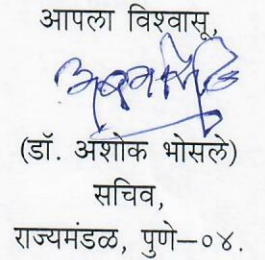 आपला विश्वासू,
(डॉ. अशोक भोसले)
सचिव,
राज्यमंडळ, पुणे–०४.